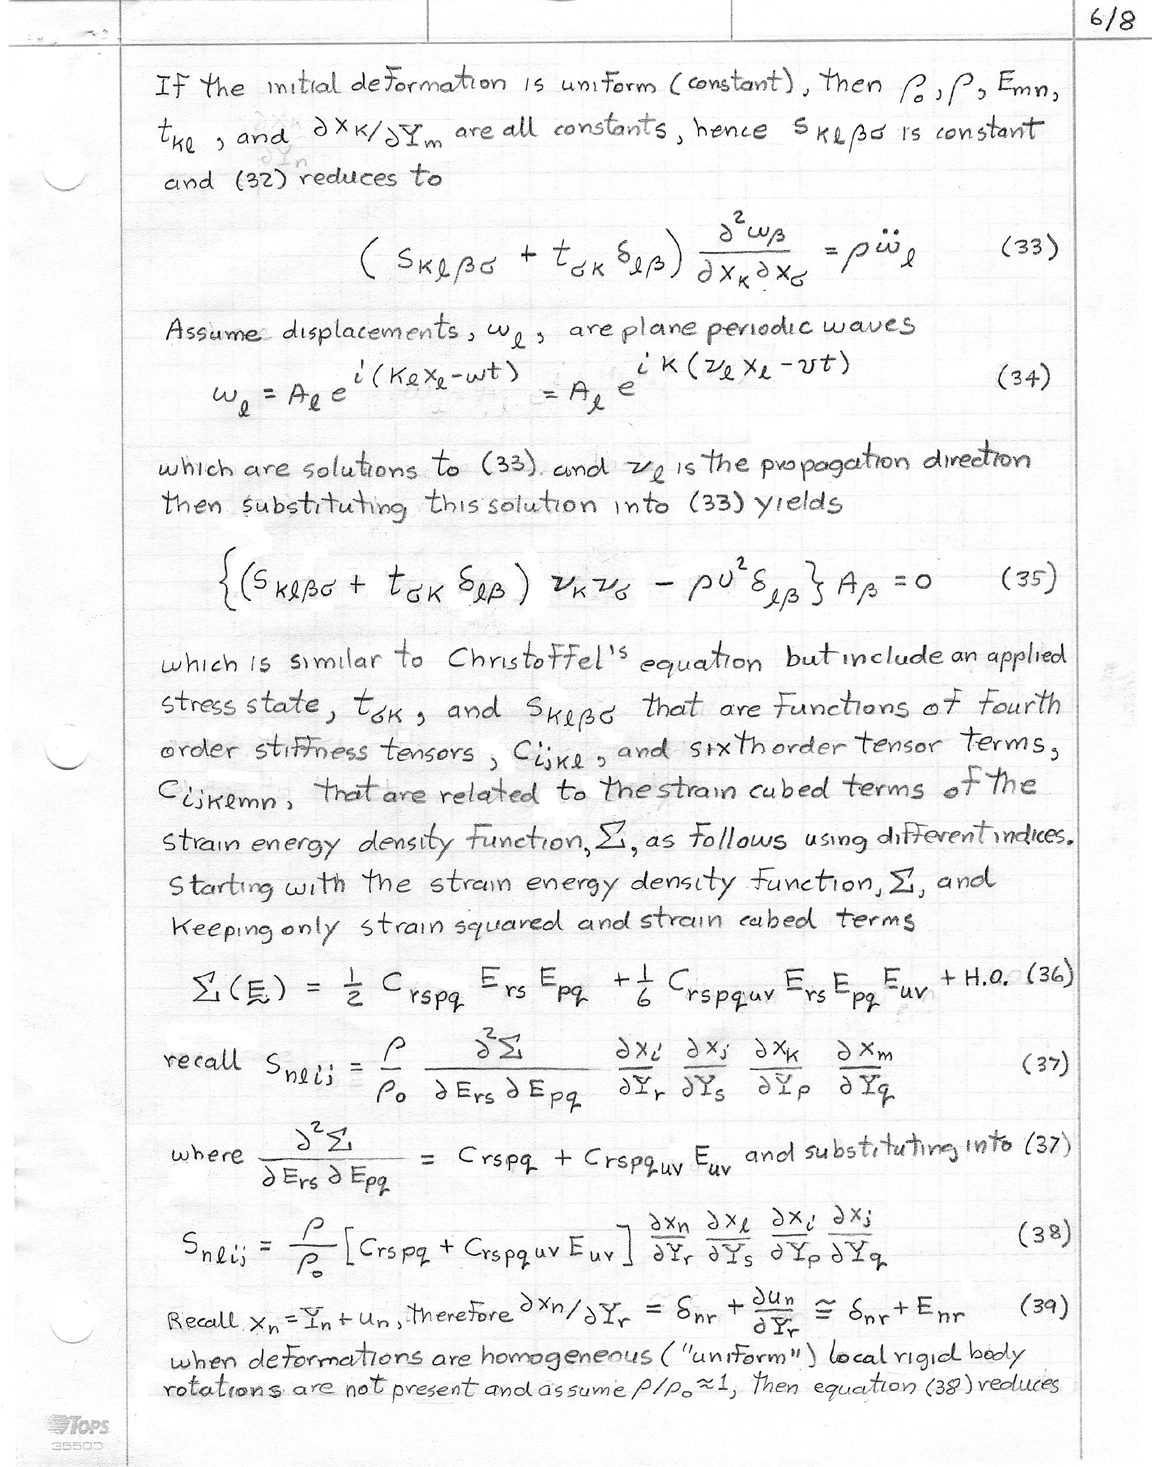 6/8
If the initial deformation is uniform (constant), then ρ₀, ρ, Emn,
tkl, and ∂xk/∂Ym are all constants, hence Sklβσ is constant
and (32) reduces to
(Sklβσ + tσk δlβ) ∂²wβ/∂xk∂xσ = ρẅl (33)
Assume displacements, wl, are plane periodic waves
wl = Al e^i(klxl-ωt) = Al e^ik(νlxl-vt) (34)
which are solutions to (33) and νl is the propagation direction
then substituting this solution into (33) yields
{(Sklβσ + tσk δlβ) νkνσ - ρv²δlβ} Aβ = 0 (35)
which is similar to Christoffel's equation but include an applied
stress state, tσk, and Sklβσ that are functions of fourth
order stiffness tensors, Cijkl, and sixth order tensor terms,
Cijklmn, that are related to the strain cubed terms of the
strain energy density function, Σ, as follows using different indices.
Starting with the strain energy density function, Σ, and
keeping only strain squared and strain cubed terms
Σ(E) = 1/2 Crspq Ers Epq + 1/6 Crspquv Ers Epq Euv + H.O. (36)
recall Snlij = ρ/ρ₀ ∂²Σ/∂Ers∂Epq ∂xi/∂Yr ∂xj/∂Ys ∂xk/∂Yp ∂xm/∂Yq (37)
where ∂²Σ/∂Ers∂Epq = Crspq + Crspquv Euv and substituting into (37)
Snlij = ρ/ρ₀ [Crspq + Crspquv Euv] ∂xn/∂Yr ∂xl/∂Ys ∂xi/∂Yp ∂xj/∂Yq (38)
Recall xn = Yn + un, therefore ∂xn/∂Yr = δnr + ∂un/∂Yr ≅ δnr + Enr (39)
when deformations are homogeneous ("uniform") local rigid body
rotations are not present and assume ρ/ρ₀ ≈ 1, then equation (38) reduces
TOPS
35500